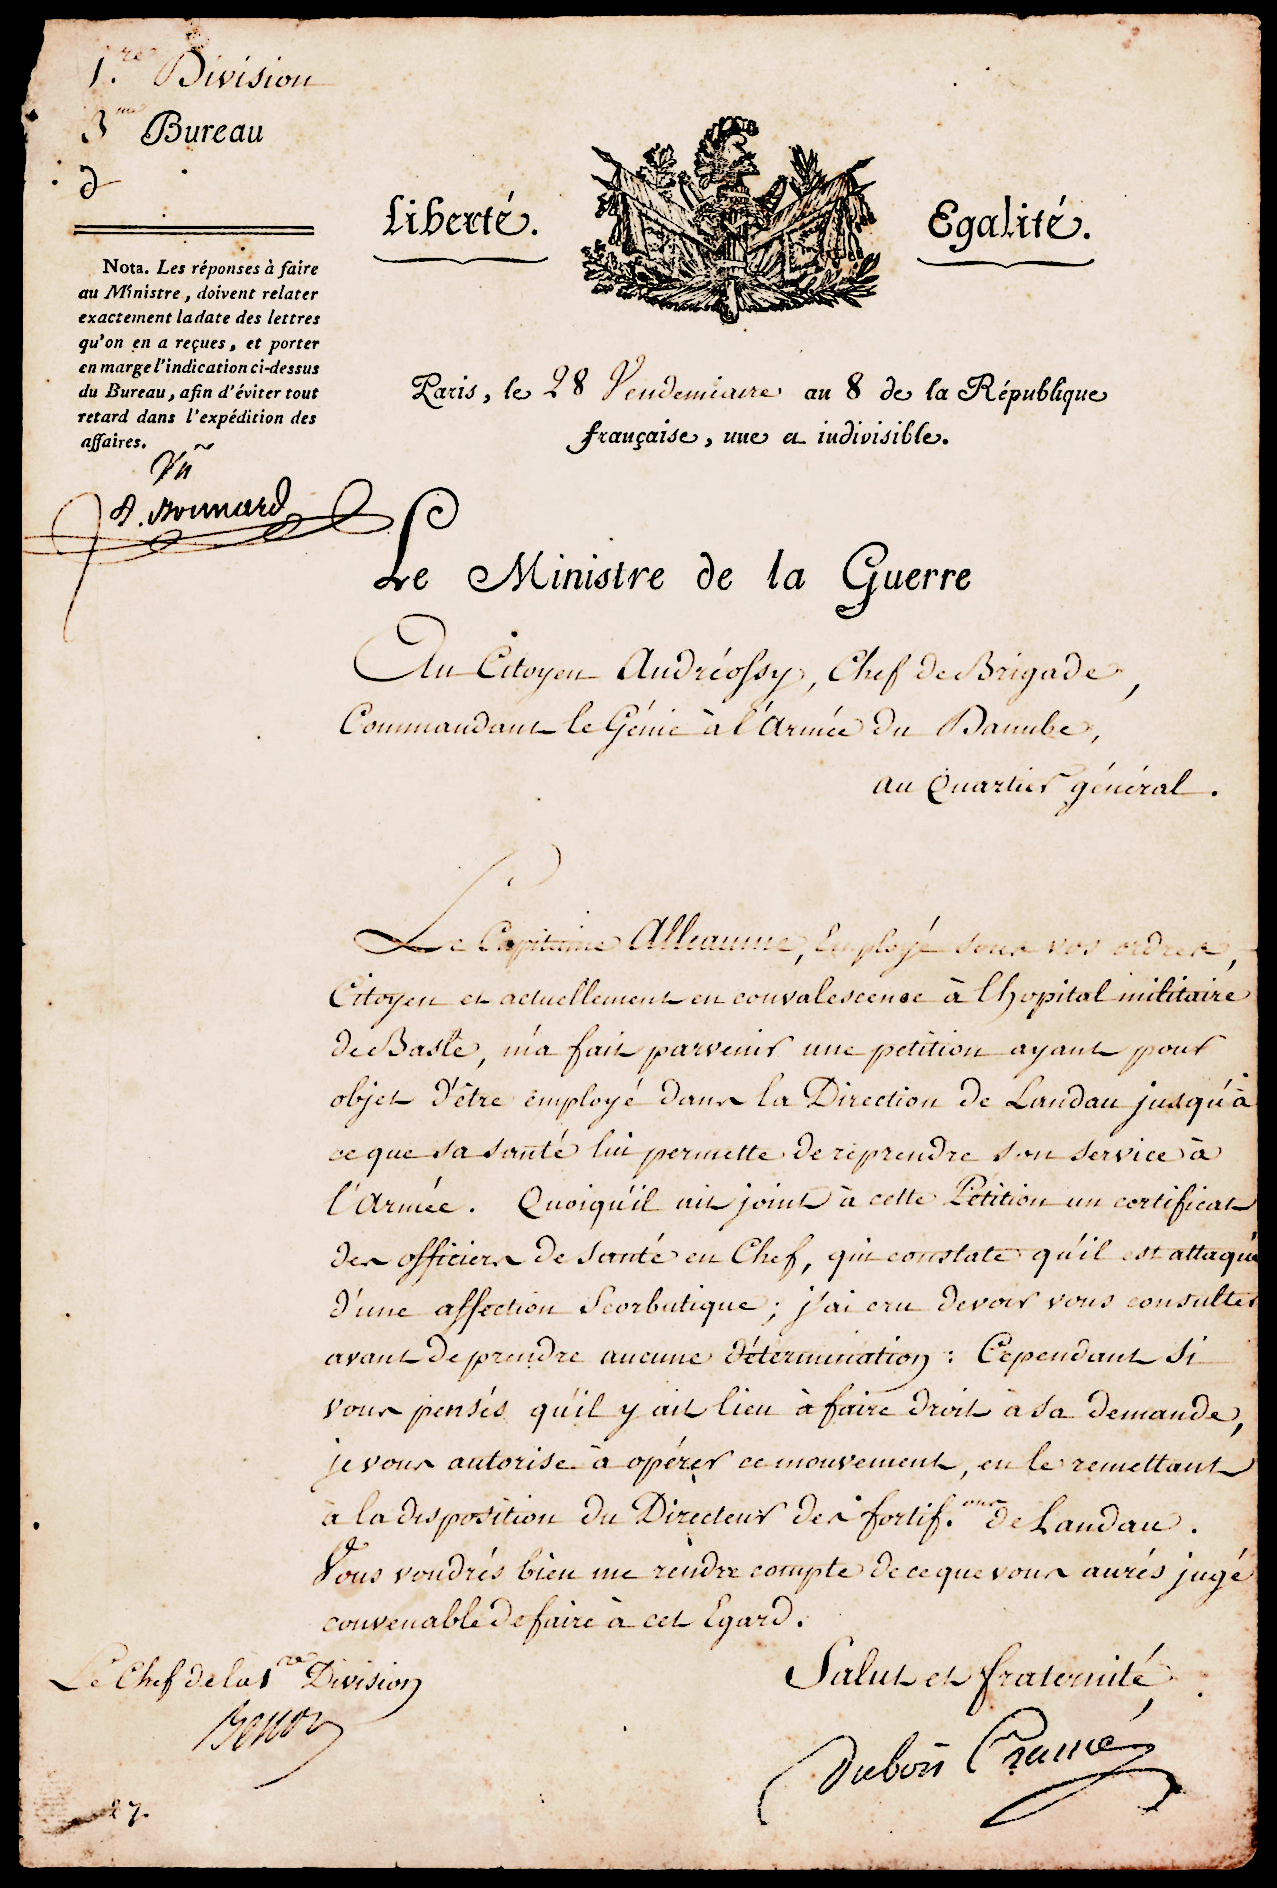 1.re Division
3me Bureau
d
Nota. Les réponses à faire
au Ministre, doivent relater
exactement la date des lettres
qu'on en a reçues, et porter
en marge l'indication ci-dessus
du Bureau, afin d'éviter tout
retard dans l'expédition des
affaires.
Liberté.
Egalité.
Paris, le 28 Vendemiaire an 8 de la République
française, une et indivisible.
Le Ministre de la Guerre
Au Citoyen Andréossy, Chef de Brigade,
Commandant le Génie à l'Armée du Danube,
au Quartier général.
Le Capitaine Alleaume, Employé sous vos ordres,
Citoyen et actuellement en convalescence à lhopital militaire
de Basle, m'a fait parvenir une petition ayant pour
objet d'être employé dans la Direction de Landau jusqu'à
ce que sa santé lui permette de reprendre son service à
l'Armée. Quoiqu'il ait joint à cette Pétition un certificat
des officiers de santé en Chef, qui constate qu'il est attaqué
d'une affection Scorbutique; j'ai cru devoir vous consulter
avant de prendre aucune détermination: Cependant si
vous pensés qu'il y ait lieu à faire droit à sa demande,
je vous autorise à opérer ce mouvement, en le remettant
à la disposition du Directeur des fortif.ons de Landau.
Vous voudrés bien me rendre compte de ce que vous aurés jugé
convenable de faire à cet Egard.
Le Chef de la 1re Division
Salut et fraternité
Dubois Crancé
27.